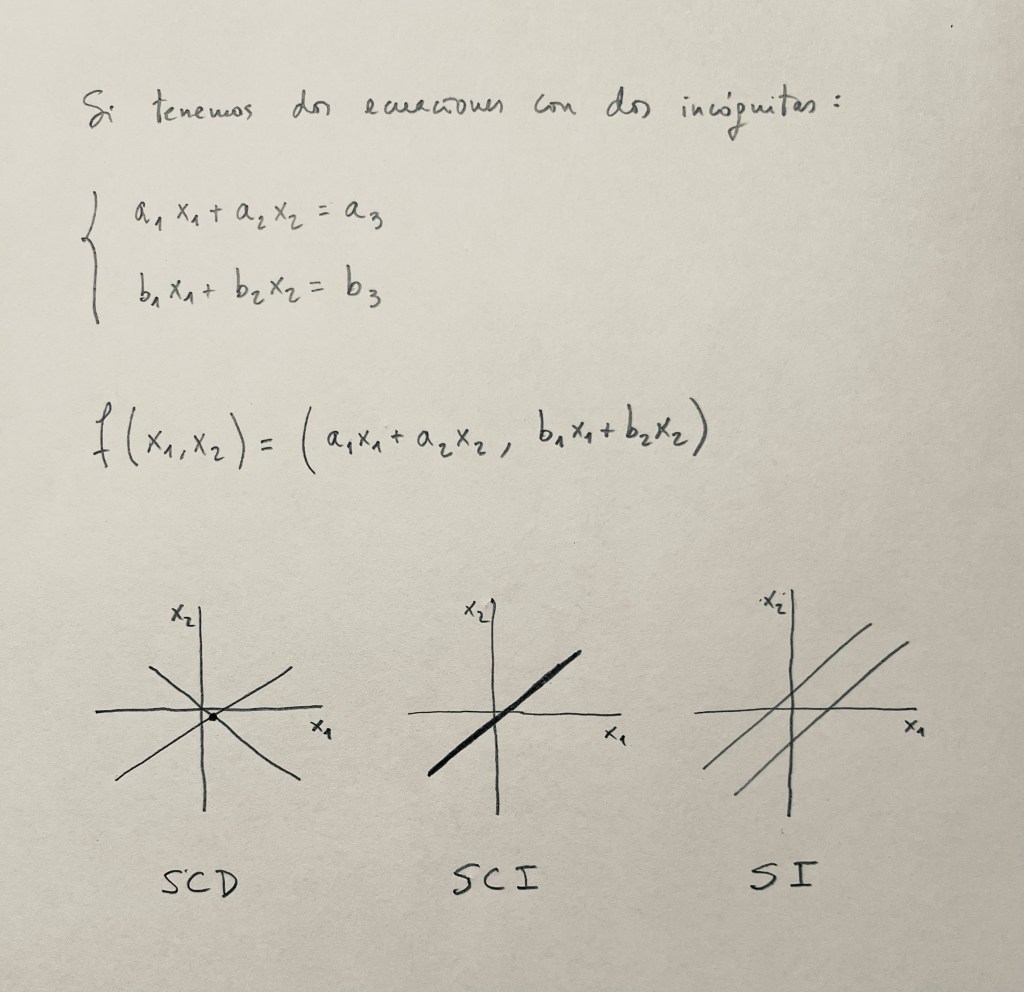 Si tenemos dos ecuaciones con dos incógnitas:
a₁x₁ + a₂x₂ = a₃
b₁x₁ + b₂x₂ = b₃
f(x₁,x₂) = (a₁x₁ + a₂x₂, b₁x₁ + b₂x₂)
x₂ x₂ x₂
x₁ x₁ x₁
SCD SCI SI